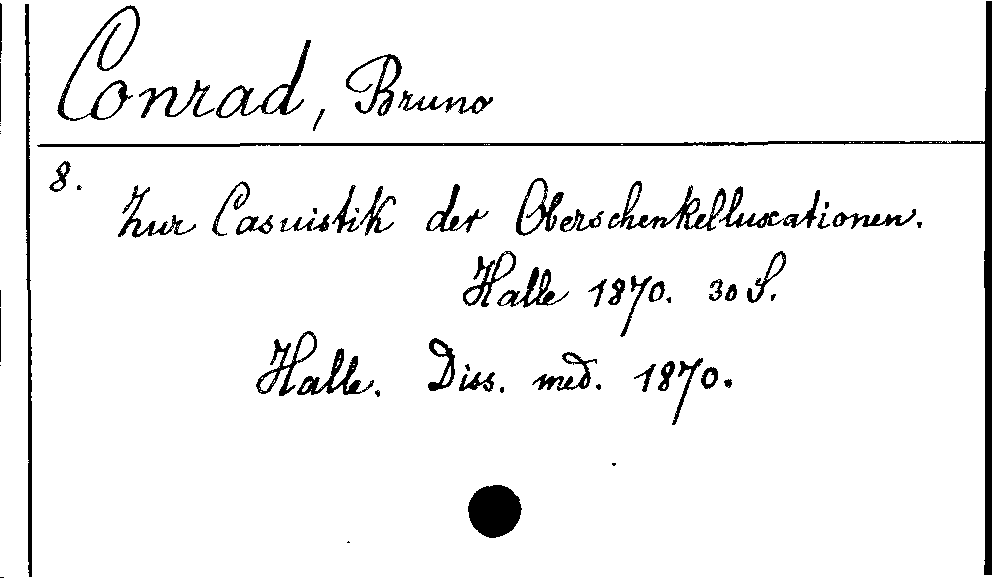 Conrad, Bruno
8.
Zur Casuistik der Oberschenkelluxationen.
Halle 1870. 30 S.
Halle. Diss. med. 1870.